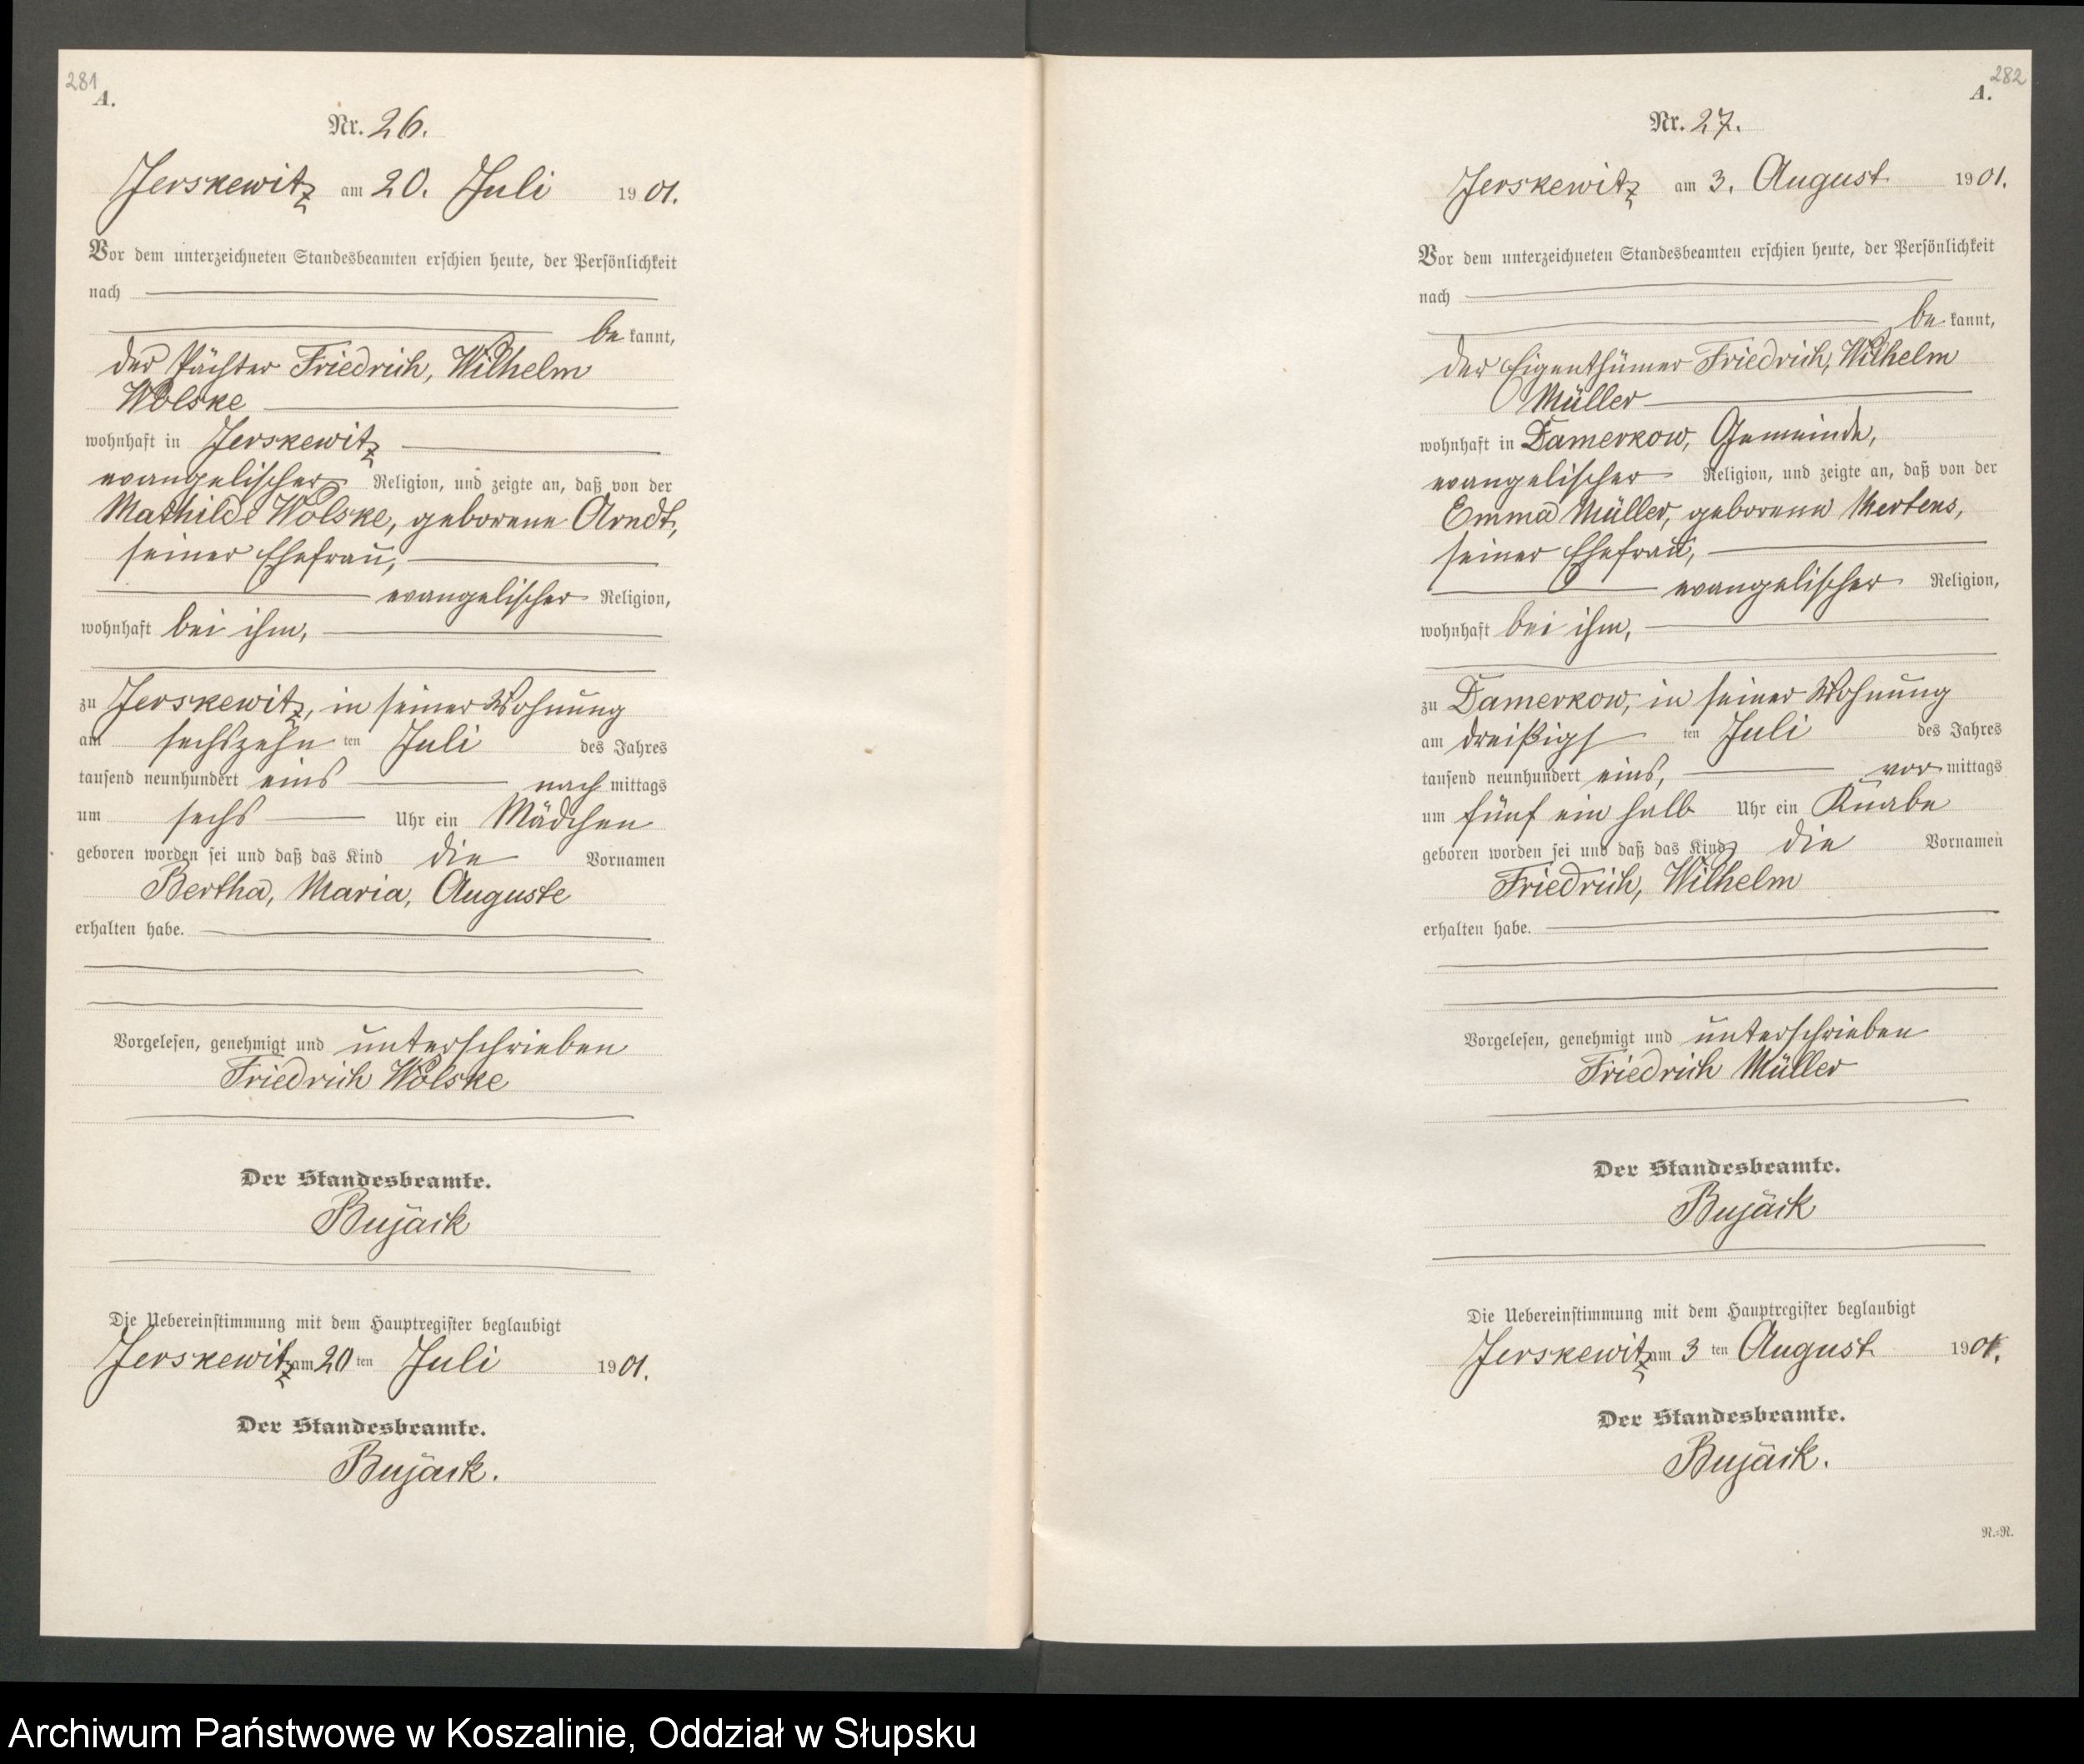 281
A.
Nr. 26.
Jerskewitz am 20. Juli 1901.
Vor dem unterzeichneten Standesbeamten erschien heute, der Persönlichkeit
nach
bekannt,
der Pächter Friedrich, Wilhelm
Wolske
wohnhaft in Jerskewitz
evangelischer Religion, und zeigte an, daß von der
Mathilde Wolske, geborene Arndt,
seiner Ehefrau,
evangelischer Religion,
wohnhaft bei ihm,
zu Jerskewitz, in seiner Wohnung
am sechszehnten Juli des Jahres
tausend neunhundert eins nachmittags
um sechs Uhr ein Mädchen
geboren worden sei und daß das Kind die Vornamen
Bertha, Maria, Auguste
erhalten habe.
Vorgelesen, genehmigt und unterschrieben
Friedrich Wolske
Der Standesbeamte.
Bujack
Die Uebereinstimmung mit dem Hauptregister beglaubigt
Jerskewitz am 20ten Juli 1901.
Der Standesbeamte.
Bujack.
282
A.
Nr. 27.
Jerskewitz am 3. August 1901.
Vor dem unterzeichneten Standesbeamten erschien heute, der Persönlichkeit
nach
bekannt,
der Eigenthümer Friedrich, Wilhelm
Müller
wohnhaft in Damerkow, Gemeinde,
evangelischer Religion, und zeigte an, daß von der
Emma Müller, geborene Mertens,
seiner Ehefrau,
evangelischer Religion,
wohnhaft bei ihm,
zu Damerkow, in seiner Wohnung
am dreißigsten Juli des Jahres
tausend neunhundert eins, vormittags
um fünf ein halb Uhr ein Knabe
geboren worden sei und daß das Kind die Vornamen
Friedrich, Wilhelm
erhalten habe.
Vorgelesen, genehmigt und unterschrieben
Friedrich Müller
Der Standesbeamte.
Bujack
Die Uebereinstimmung mit dem Hauptregister beglaubigt
Jerskewitz am 3ten August 1901.
Der Standesbeamte.
Bujack.
R.-R.
Archiwum Państwowe w Koszalinie, Oddział w Słupsku